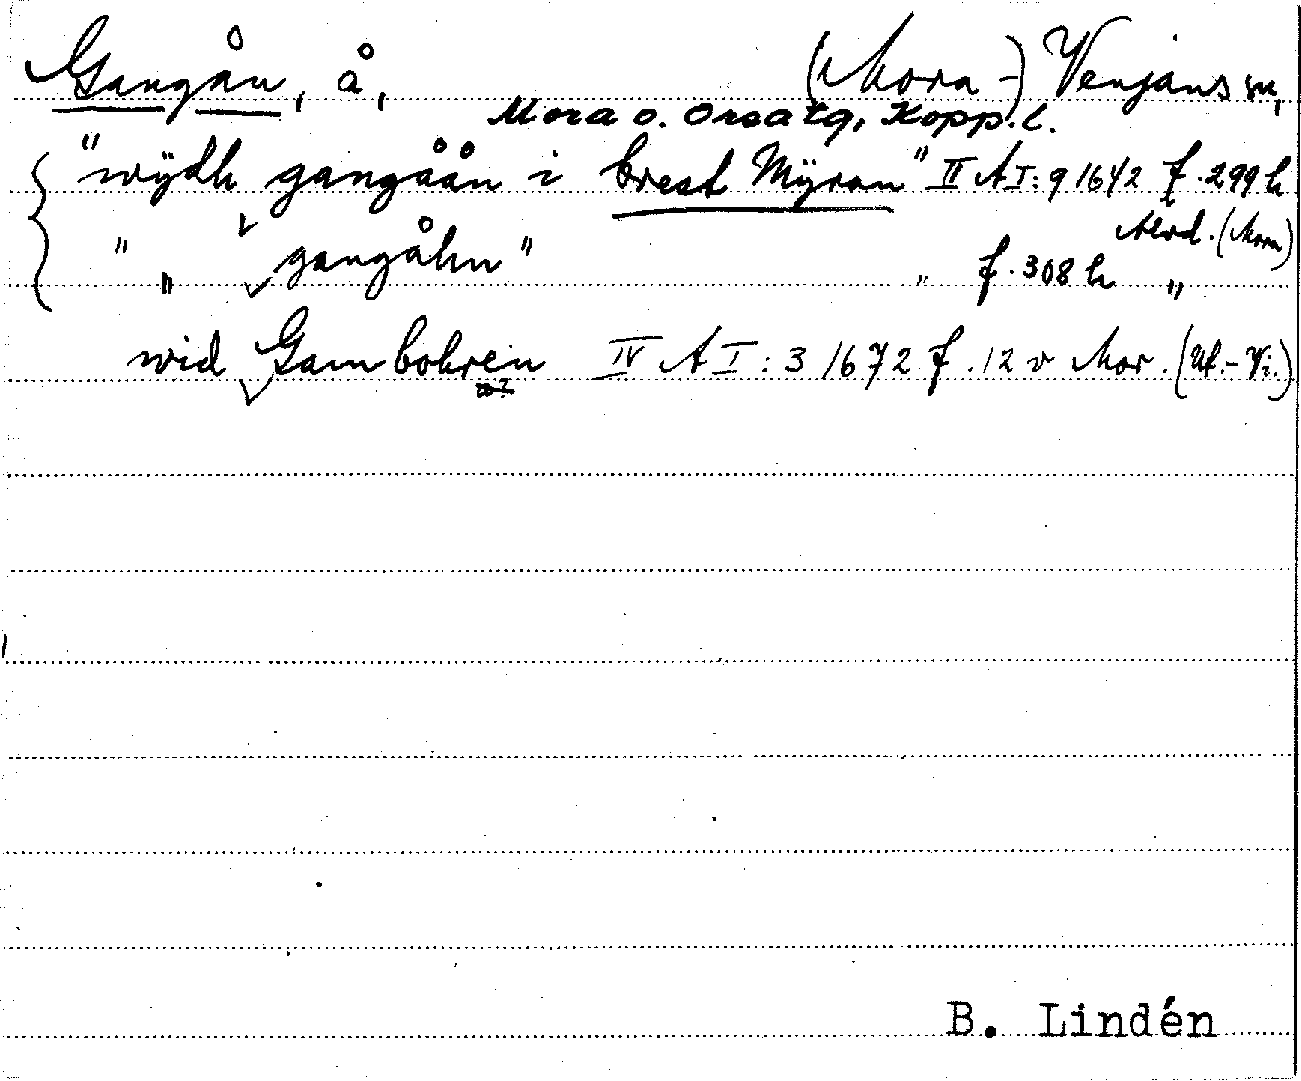 Gangån, å, (Mora-) Venjans sn,
Mora o. Orsa tg, Kopp. l.
"wÿdh gangåån i brest Mÿran" II A I:9 1642 f. 299 h
Ålvd. (Mora)
" „ gangåhn" „ f. 308 h „
wid Gambohren IV A I:3 1672 f. 12 v Mor. (Uf.-Vi.)
B. Lindén